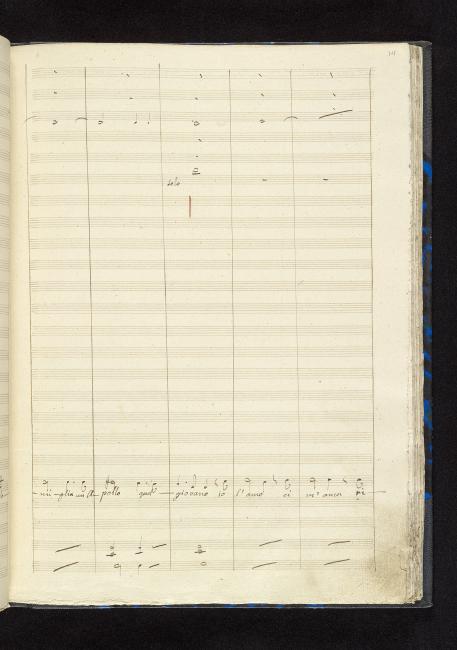 solo
mi - glia un A - pollo quel giovane io l'amo ei m'ancor